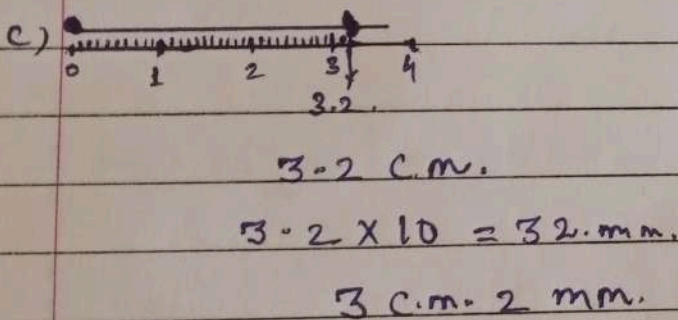 c)
0 1 2 3 4
3.2.
3.2 c.m.
3.2 × 10 = 32.mm.
3 c.m. 2 mm.